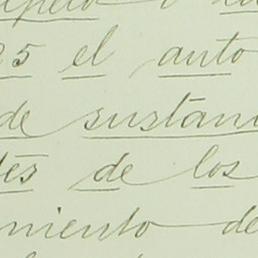 25 el auto
de sustan
tes de los
miento de